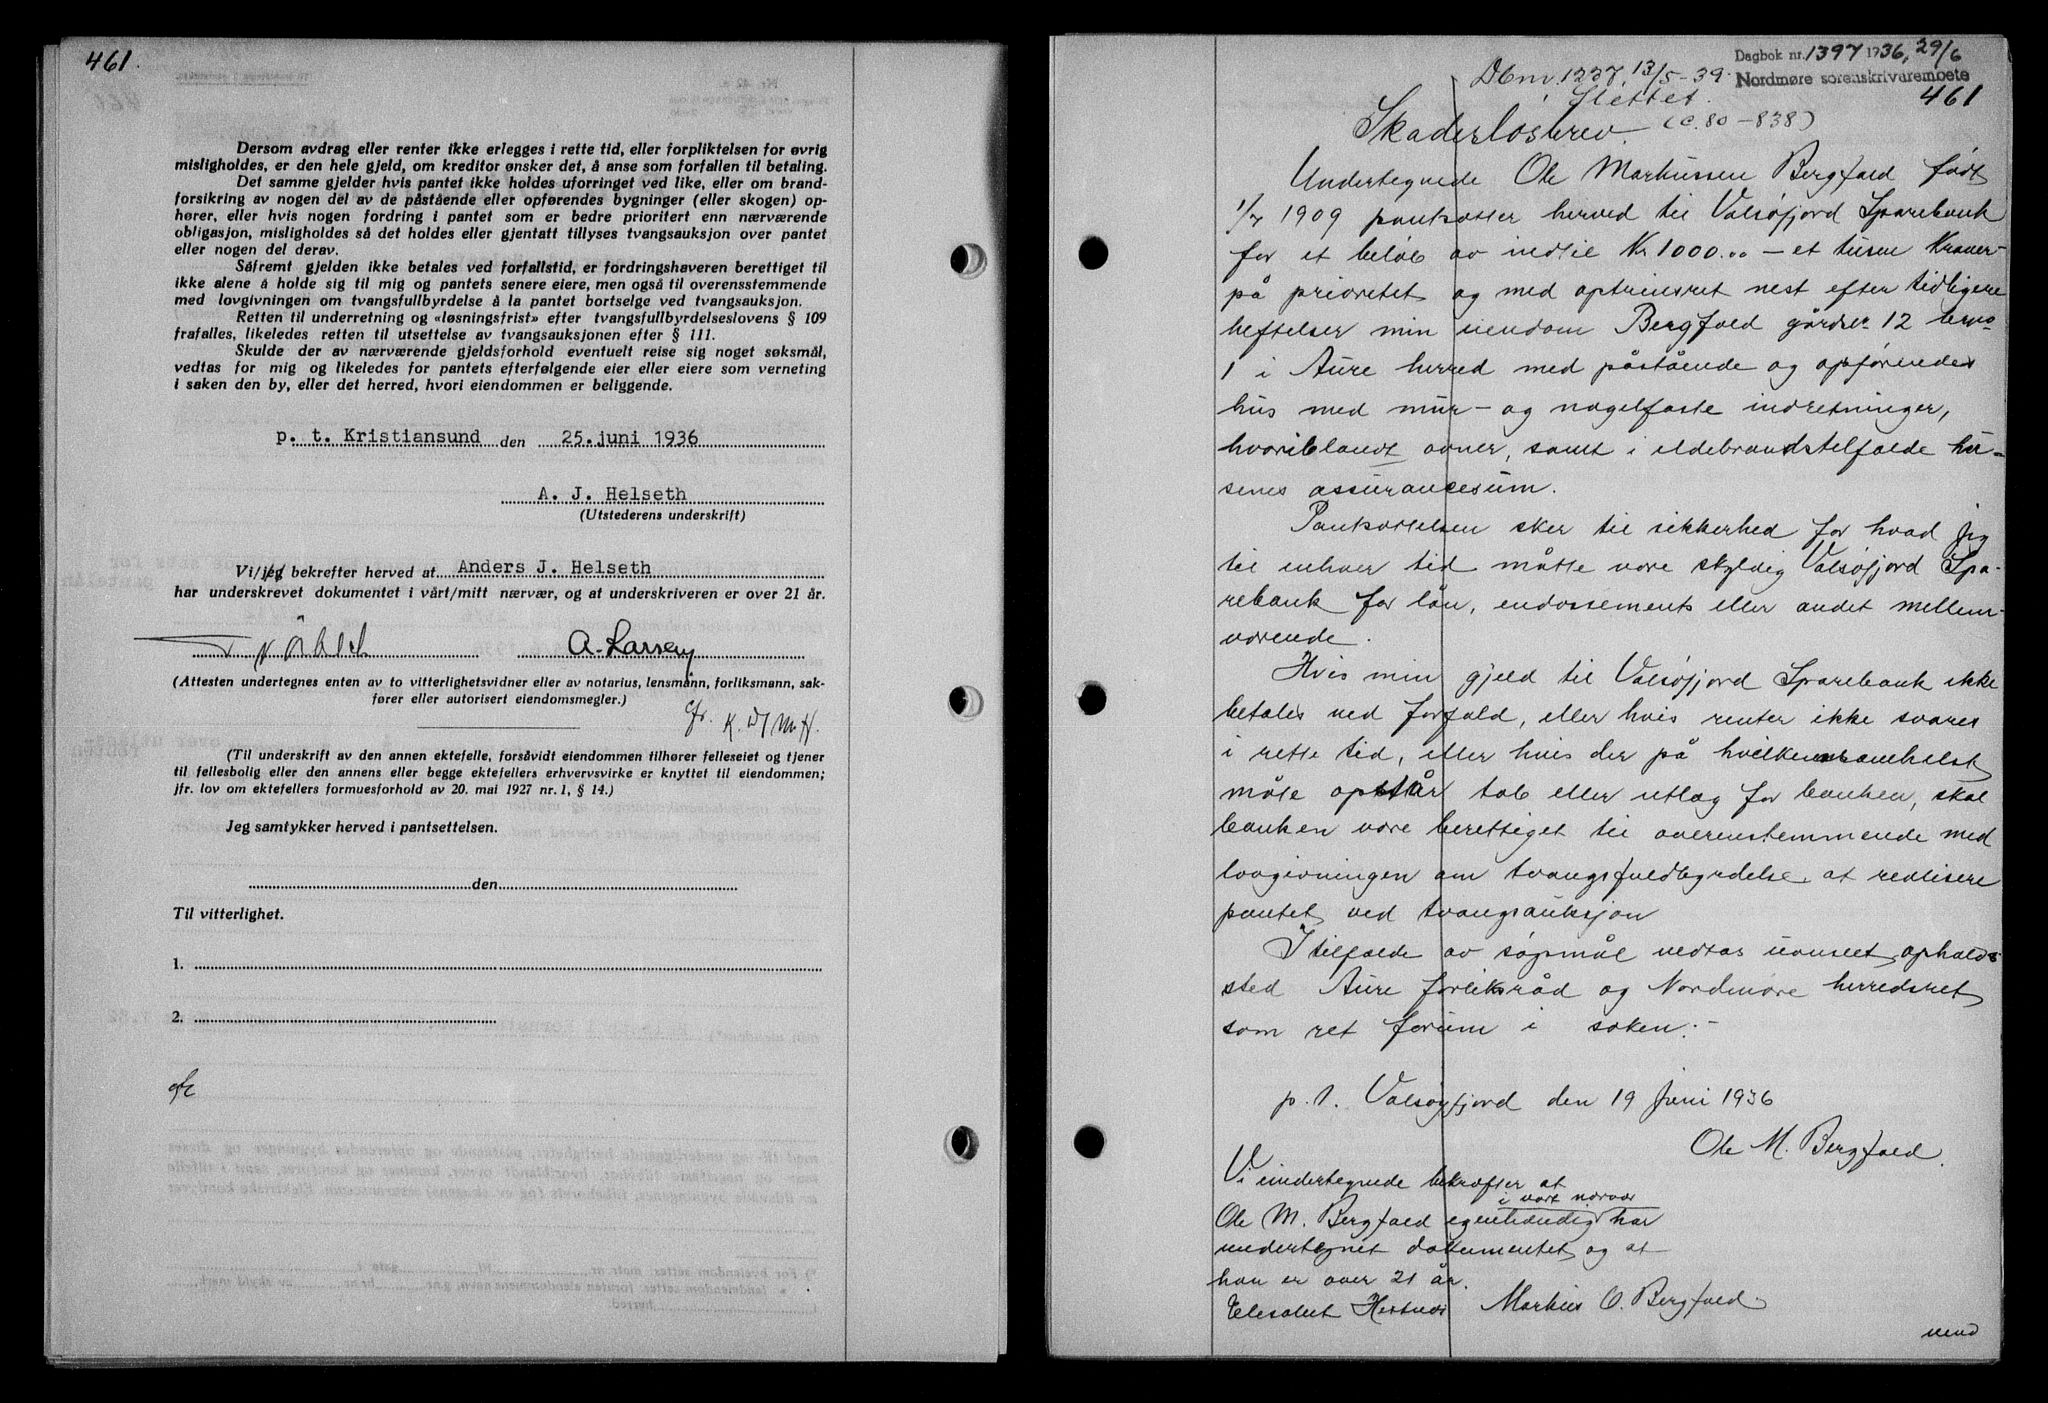 461.
Dersom avdrag eller renter ikke erlegges i rette tid, eller forpliktelsen for øvrig
misligholdes, er den hele gjeld, om kreditor ønsker det, å anse som forfallen til betaling.
Det samme gjelder hvis pantet ikke holdes uforringet ved like, eller om brand-
forsikring av nogen del av de påstående eller opførendes bygninger (eller skogen) op-
hører, eller hvis nogen fordring i pantet som er bedre prioritert enn nærværende
obligasjon, misligholdes så det holdes eller gjentatt tillyses tvangsauksjon over pantet
eller nogen del derav.
Såfremt gjelden ikke betales ved forfallstid, er fordringshaveren berettiget til
ikke alene å holde sig til mig og pantets senere eiere, men også til overensstemmende
med lovgivningen om tvangsfullbyrdelse å la pantet bortselge ved tvangsauksjon.
Retten til underretning og «løsningsfrist» efter tvangsfullbyrdelseslovens § 109
frafalles, likeledes retten til utsettelse av tvangsauksjonen efter § 111.
Skulde der av nærværende gjeldsforhold eventuelt reise sig noget søksmål,
vedtas for mig og likeledes for pantets efterfølgende eier eller eiere som verneting
i saken den by, eller det herred, hvori eiendommen er beliggende.
p. t. Kristiansund den 25. juni 1936
A. J. Helseth
(Utstederens underskrift)
Vi/jeg bekrefter herved at Anders J. Helseth
har underskrevet dokumentet i vårt/mitt nærvær, og at underskriveren er over 21 år.
A. Larsen
(Attesten undertegnes enten av to vitterlighetsvidner eller av notarius, lensmann, forliksmann, sak-
fører eller autorisert eiendomsmegler.)
(Til underskrift av den annen ektefelle, forsåvidt eiendommen tilhører felleseiet og tjener
til fellesbolig eller den annens eller begge ektefellers erhvervsvirke er knyttet til eiendommen;
jfr. lov om ektefellers formuesforhold av 20. mai 1927 nr. 1, § 14.)
Jeg samtykker herved i pantsettelsen.
den
Til vitterlighet.
1.
2.
Dagbok nr. 1397 1936, 29/6
Nordmøre sorenskriverembete
461
Dbnr. 1227, 13/5-39.
Slettet.
(C. 80-838)
Skadesløsbrev.
Undertegnede Ole Markussen Bergfald født
1/7 1909 pantsetter herved til Valsøfjord Sparebank
for et beløb av indtil Kr 1000.00 – et tusen kroner –
på prioritet og med optrinsret nest efter tidligere
heftelser min eiendom Bergfald gårdsnr 12 brno
1 i Aure herred med påstående og opførendes
hus med mur- og nagelfaste indretninger,
hvoriblandt ovner, samt i ildebrandstilfælde hu-
senes assurancesum.
Pantsettelsen sker til sikkerhed for hvad jeg
til enhver tid måtte være skyldig Valsøfjord Spa-
rebank for lån, endossements eller andet mellem-
værende.
Hvis min gjeld til Valsøfjord Sparebank ikke
betales ved forfald, eller hvis renter ikke svares
i rette tid, eller hvis der på hvilkensomhelst
måte opstår tab eller utlæg for banken, skal
banken være berettiget til overenstemmende med
lovgivningen om tvangsfuldbyrdelse at realisere
pantet ved tvangsauksjon
I tilfælde av søgsmål vedtas uanseet opholds
sted Aure forliksråd og Nordmøre herredsret
som ret forum i saken. –
p. t. Valsøyfjord den 19 Juni 1936
Ole M. Bergfald.
Vi undertegnede bekræfter at
i vort nærvær
Ole M. Bergfald egenhændig har
undertegnet dokumentet og at
han er over 21 år.
Elesabet Hestnes Markus O. Bergfald
vend